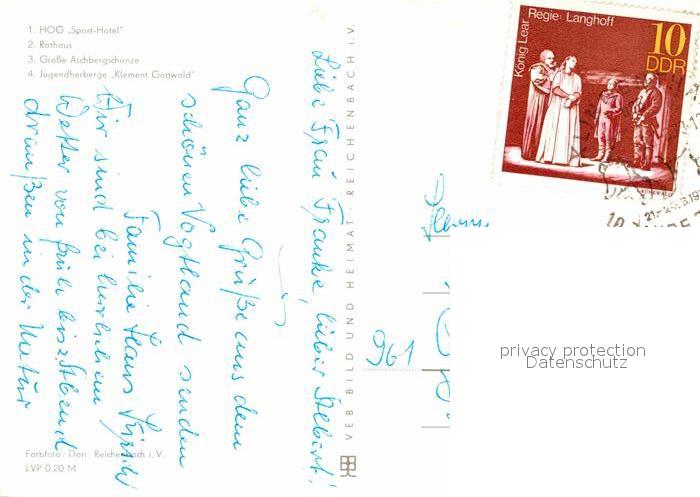 1. HOG „Sport-Hotel"
2. Rathaus
3. Große Aschbergschanze
4. Jugendherberge „Klement Gottwald"
Liebe Frau Franke, lieber Albert!
Ganz liebe Grüße aus dem
schönen Vogtland senden
Familie Hans
Wir sind bei herrlichem
Wetter von früh bis z. Abend
draußen in der Natur
Farbfoto: Darr, Reichenbach i. V.
LVP 0,20 M
VEB BILD UND HEIMAT REICHENBACH i. V.
König Lear
Regie: Langhoff
10
DDR
961
privacy protection
Datenschutz